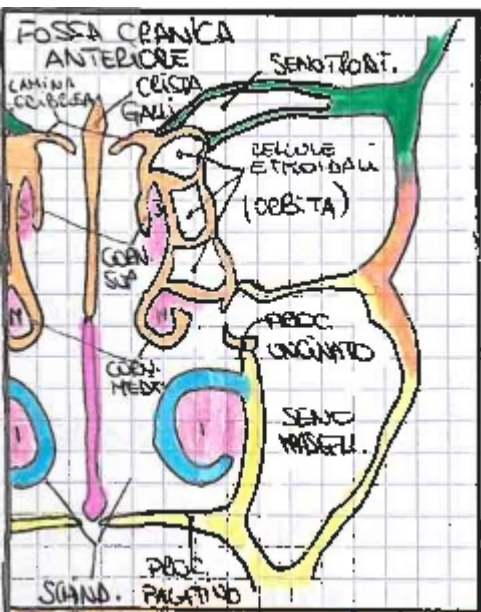 FOSSA CRANICA
ANTERIORE
LAMINA
CRIBREA
CRISTA
GALLI
SENO FRONT.
CELLULE
ETMOIDALI
(ORBITA)
S
S
CORN.
SUP
M
M
CORN.
MEDIO
PROC.
UNCINATO
I
I
SENO
MASCELL.
SCHIND.
PROC.
PALATINO